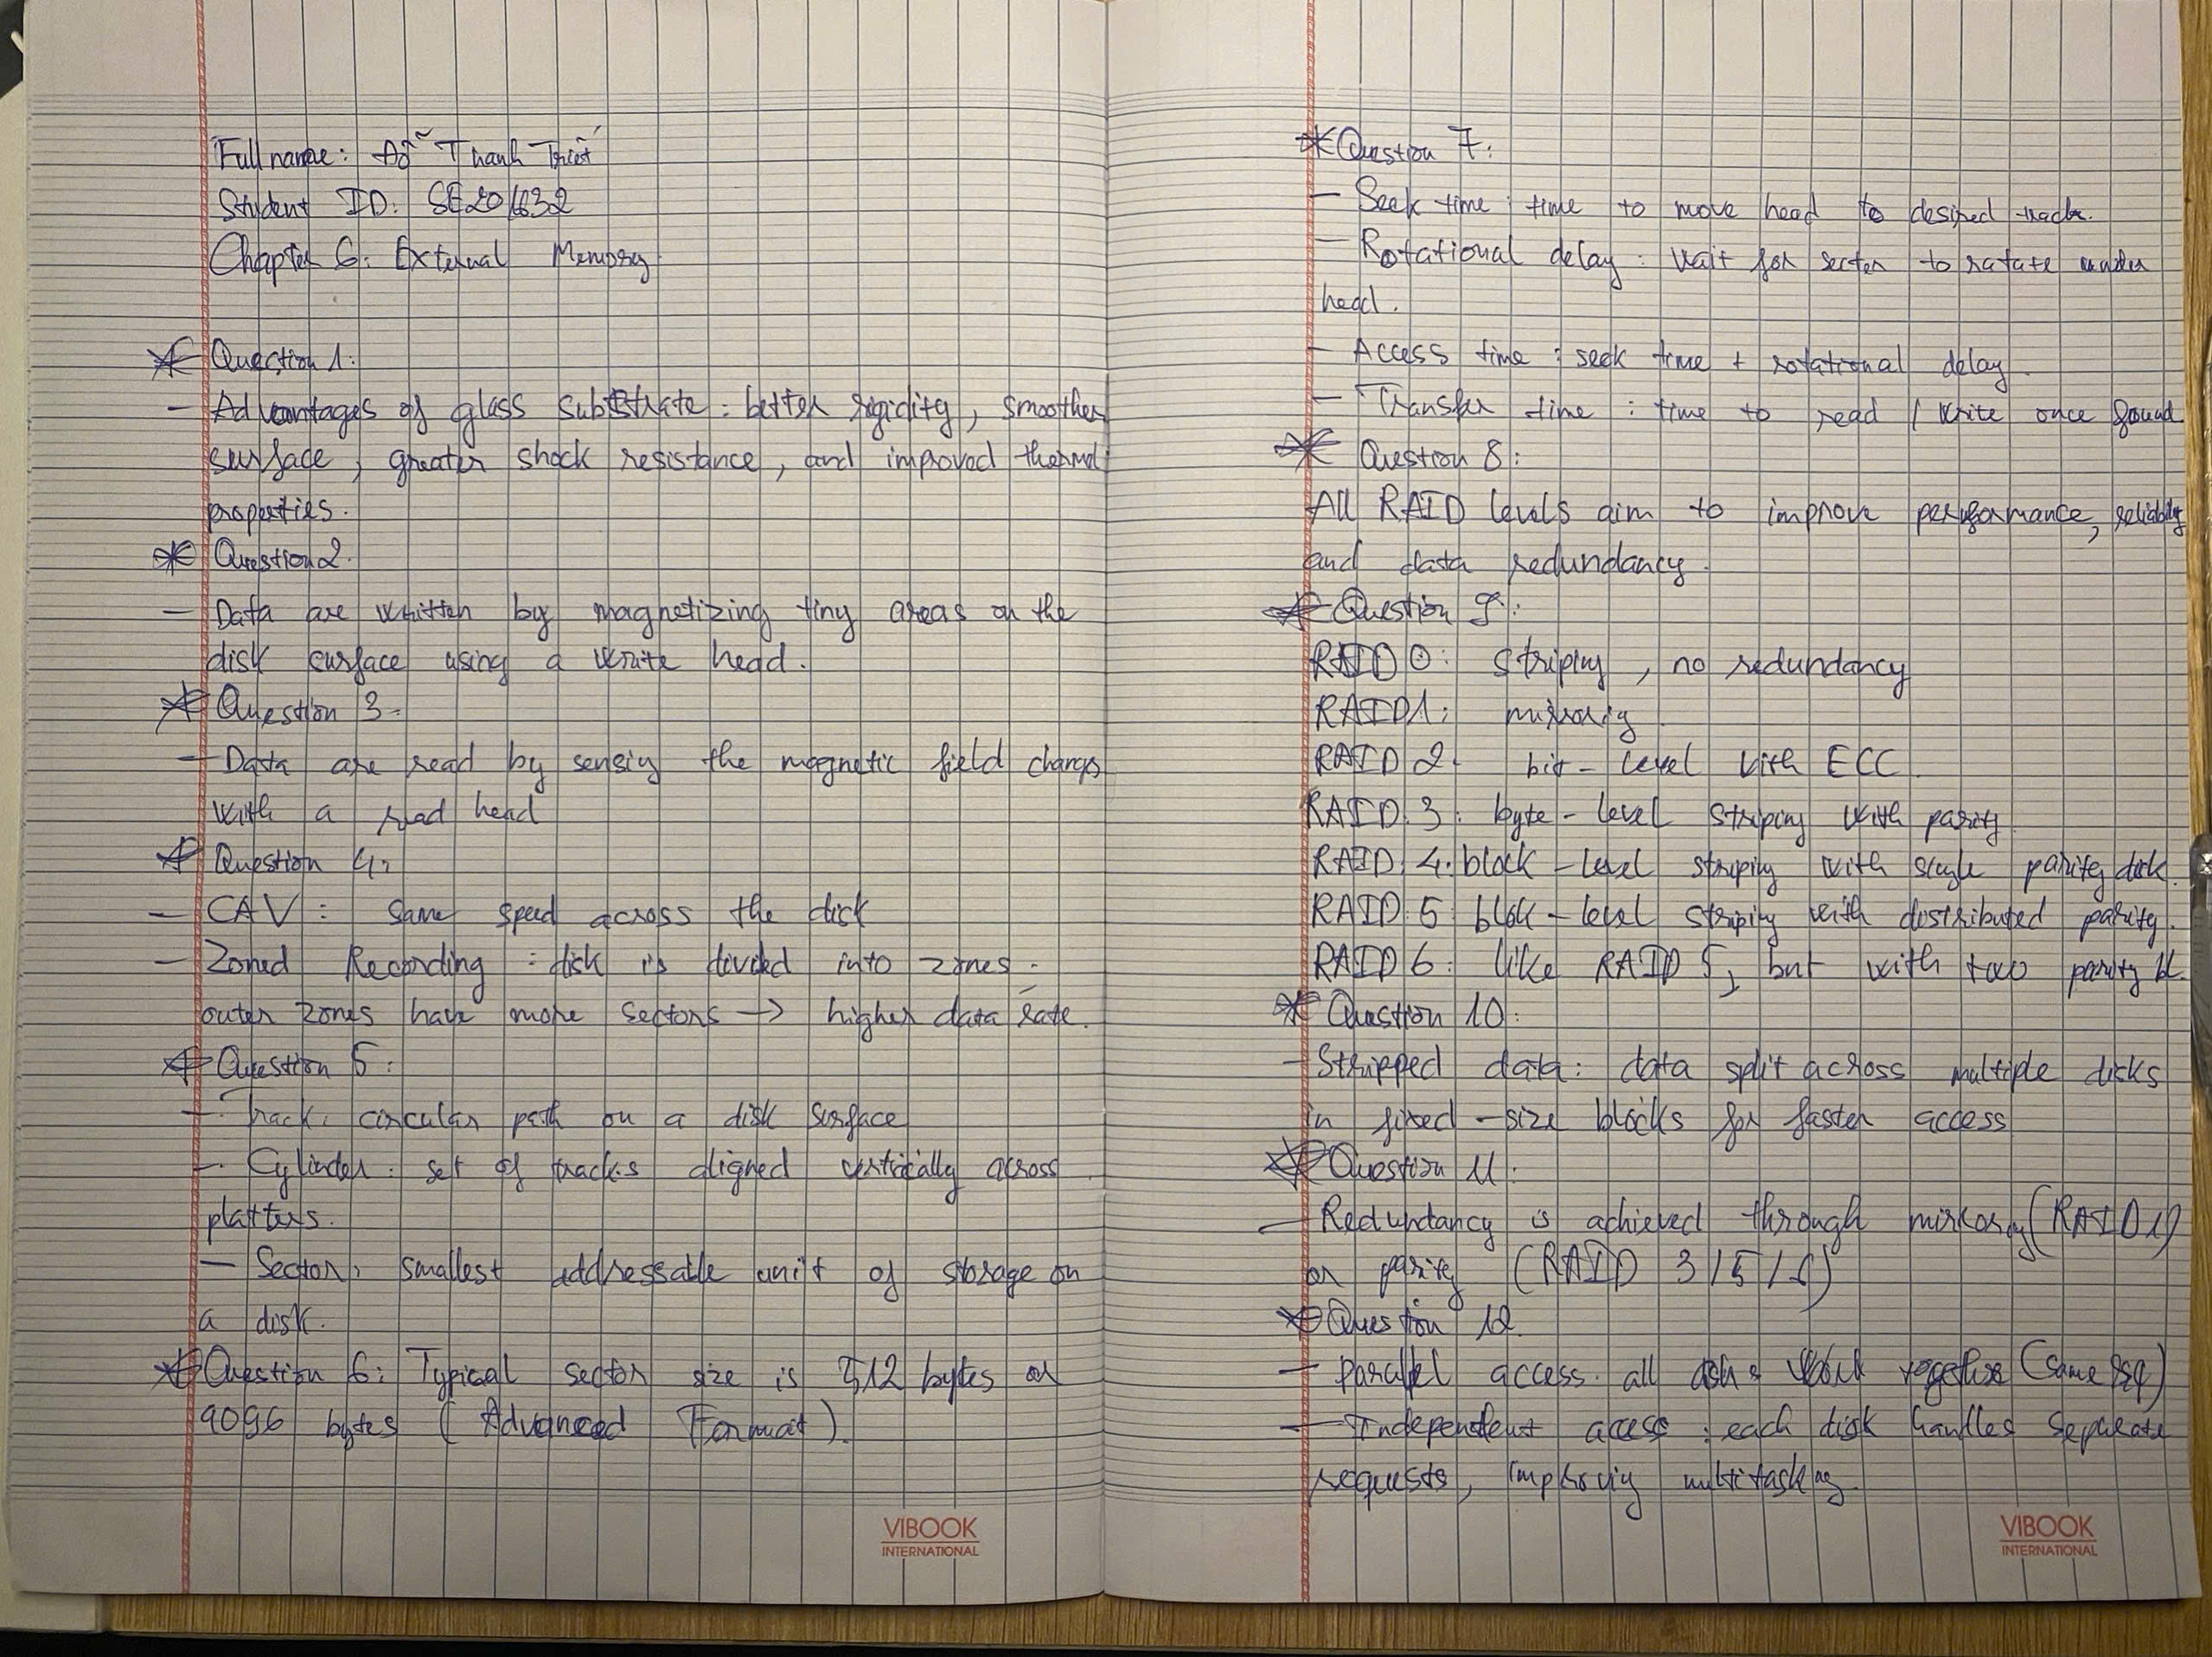 Full name: Đỗ Thanh Triết
Student ID: SE201632
Chapter 6: External Memory
* Question 1:
- Advantages of glass substrate: better rigidity, smoother
surface, greater shock resistance, and improved thermal
properties.
* Question 2.
- Data are written by magnetizing tiny areas on the
disk surface using a write head.
* Question 3-
- Data are read by sensig the magnetic field changs
with a read head
* Question 4,
- CAV: same speed across the disk
- Zoned Recording: disk is divided into zones.
outer zones have more sectors → higher data rate.
* Question 5:
- Track: circular path on a disk surface
- Cylinder: set of tracks aligned vertically across
platters.
- Sector: smallest addressable unit of storage on
a disk.
* Question 6: Typical sector size is 512 bytes or
4096 bytes (Advanced Format).
* Question 7:
- Seek time: time to move head to desired track.
- Rotational delay: wait for sector to rotate under
head.
- Access time: seek time + rotational delay
- Transfer time: time to read / write once found
* Question 8:
All RAID levels aim to improve performance, reliability
and data redundancy.
* Question 9:
RAID 0: striping, no redundancy
RAID 1: mirrorig
RAID 2: bit-level with ECC
RAID 3: byte-level striping with parity
RAID 4: block-level striping with single parity disk.
RAID 5 blok-level striping with distributed parity.
RAID 6: like RAID 5, but with two parity
* Question 10:
- Stripped data: data split across multiple disks
in fixed-size blocks for faster access
* Question 11:
- Redundancy is achieved through mirroring (RAID 1)
or parity (RAID 3/5/6)
* Question 12.
- parallel access: all disks work together (same)
- Independent access: each disk handles separate
requests, improvig multitasking.
VIBOOK
INTERNATIONAL
VIBOOK
INTERNATIONAL